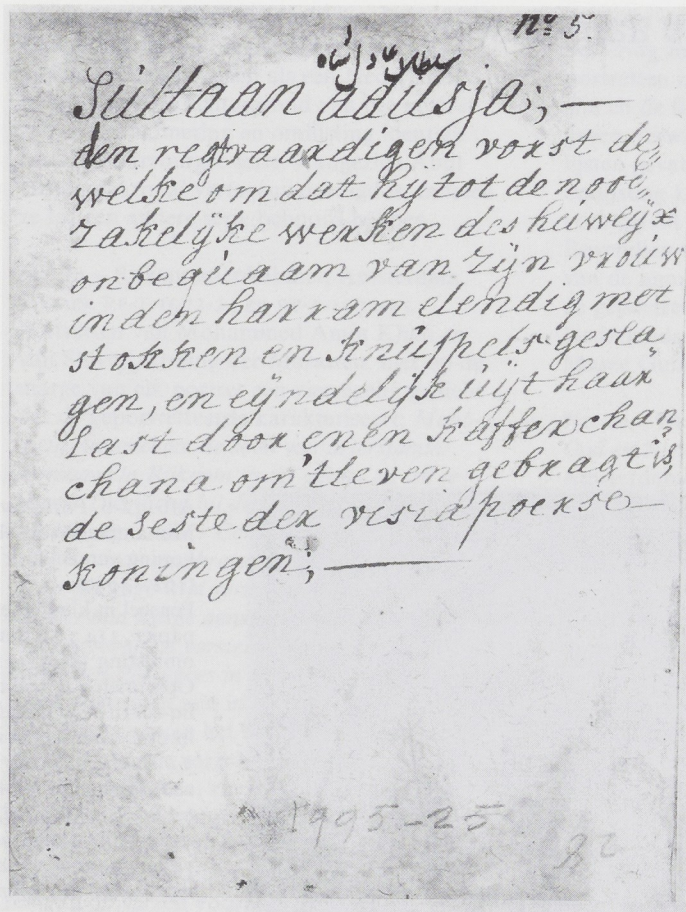 No 5.
سلطان عادل شاه
Sultaan adilsja; —
den regtvaardigen vorst de„
welke om dat hij tot de nood„
zakelijke werken des huweijx
onbequaam van zijn vrouw
in den harram elendig met
stokken en knuppels gesla„
gen, en eijndelijk uijt haar
last door enen kaffer chan
chana om't leven gebragt is,
de seste der visiapoerse —
koningen; —
1995-25